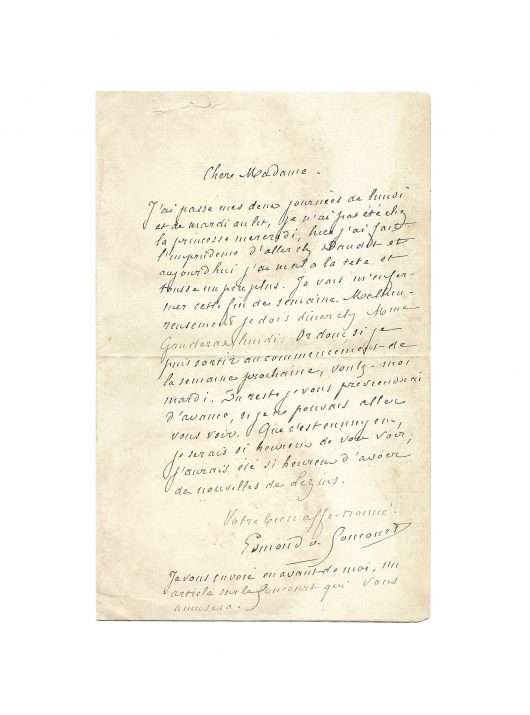 Chere Madame.
J'ai passé mes deux journées de lundi
et de mardi au lit, je n'ai pas été chez
la princesse mercredi, hier j'ai fait
l'imprudence d'aller ch Daudet et
aujourd'hui j'ai mal a la tete et
tousse un peu plus. Je vais m'enfer-
mer cette fin de semaine. Malheu-
reusement je dois diner chez Mme
Ganderax lundi. Or donc si je
puis sortir au commencement de
la semaine prochaine, voulez-moi
mardi. Du reste je vous previendrai
d'avance, si je ne pouvais aller
vous voir. Que c'est ennuyeux,
je serais si heureux de vous voir,
j'aurais été si heureux d'avoir
de nouvelles de
Votre bien affectionné
Edmond de Goncourt
Je vous envoie en avant de moi, un
article sur les Goncourt qui vous
amusera.